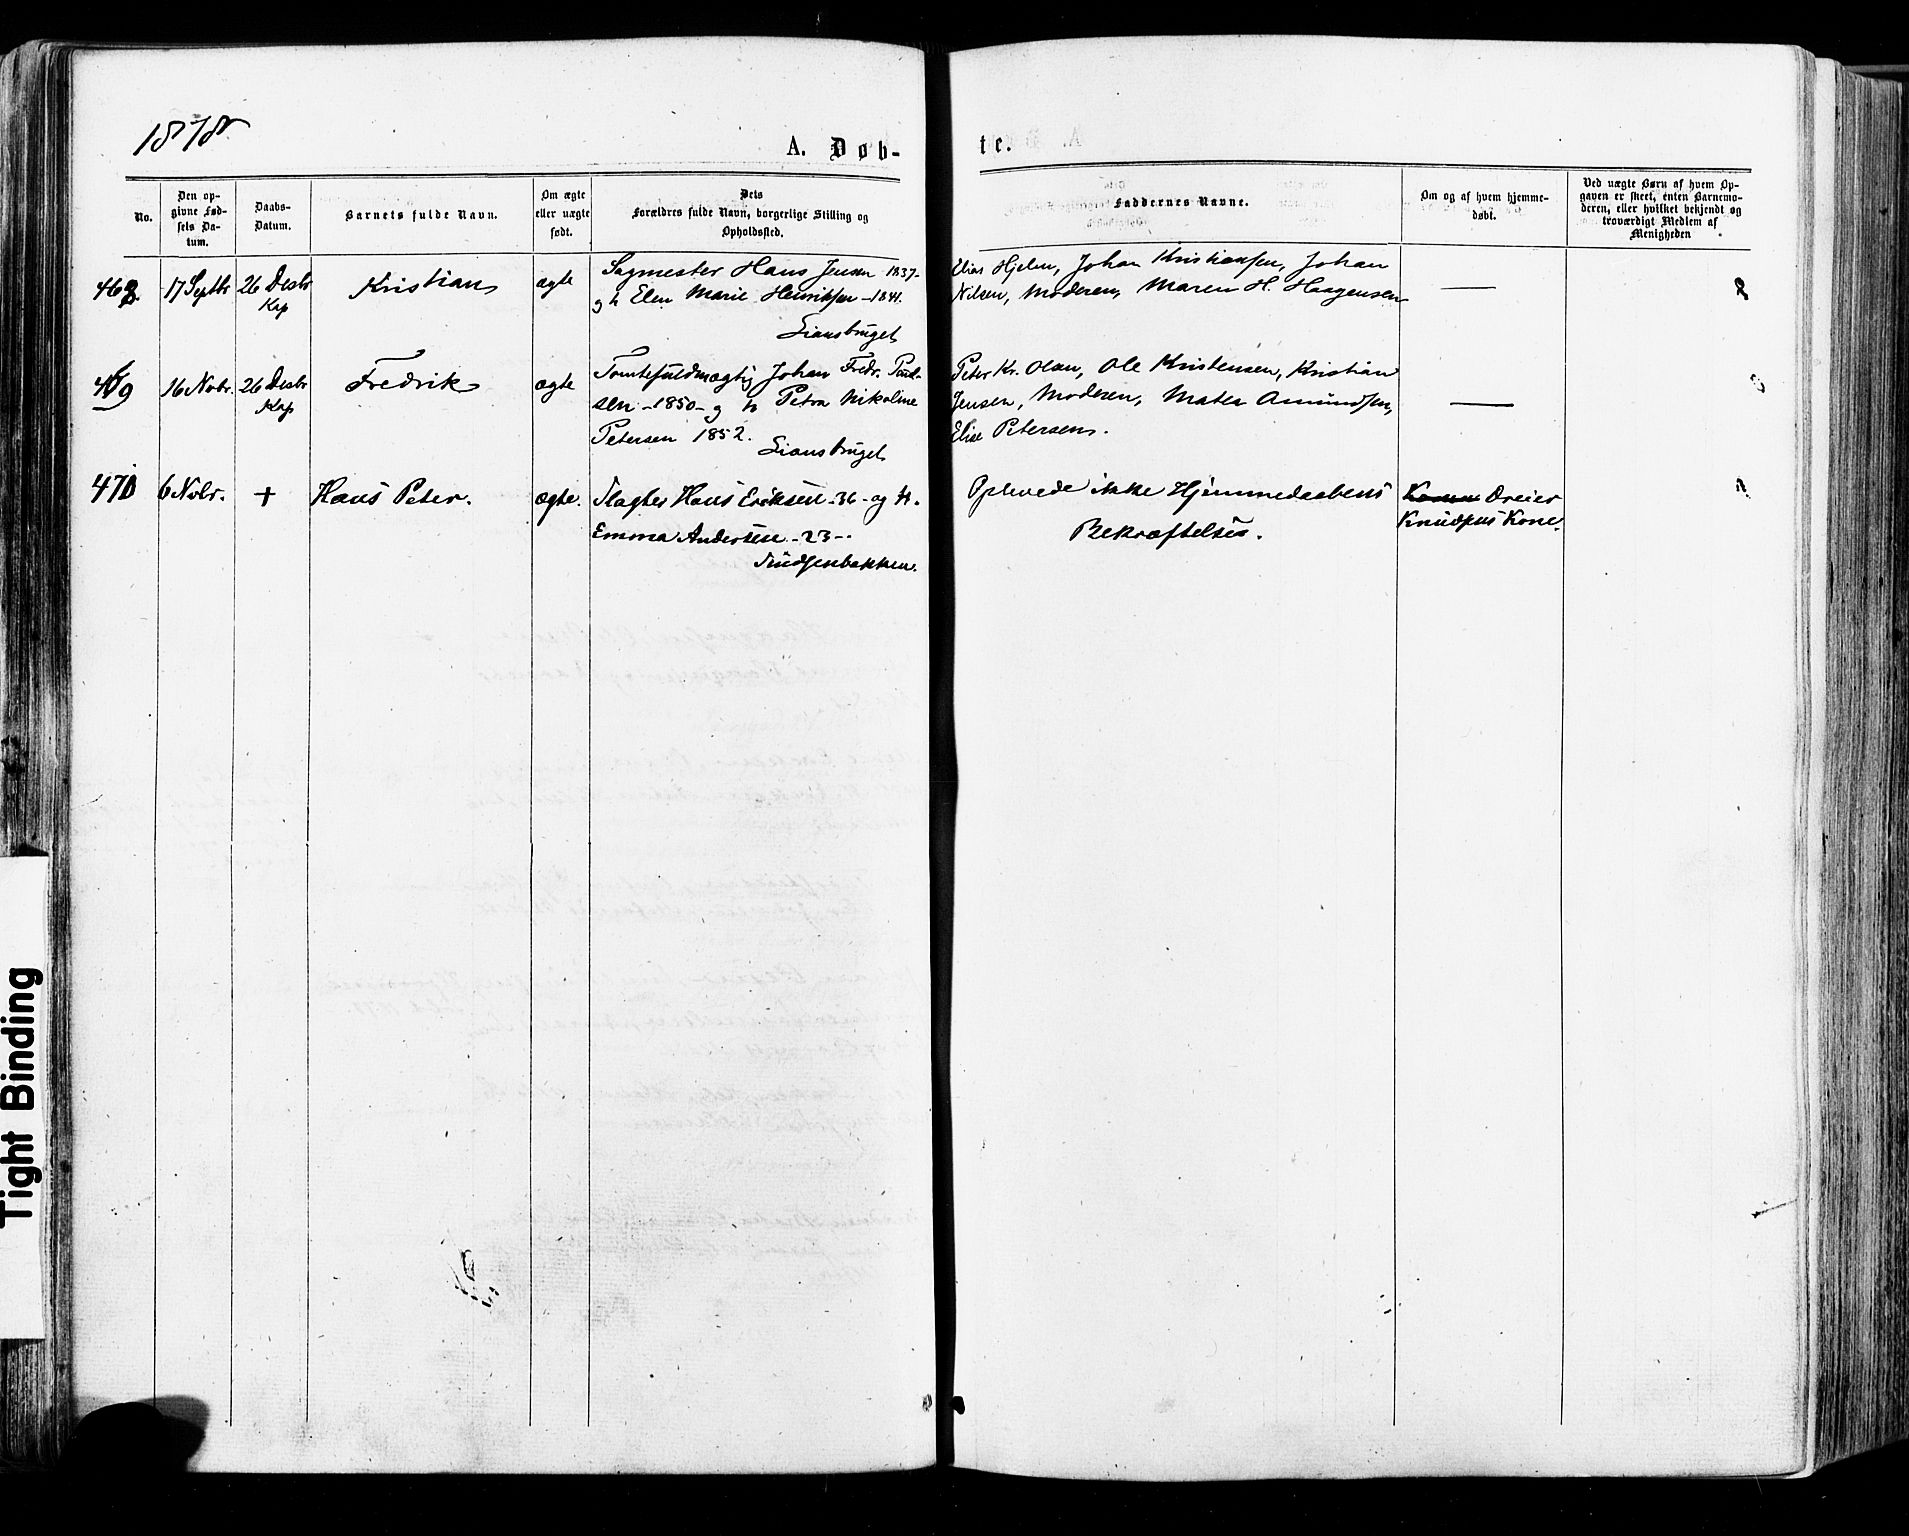 1878
A. Døb-
te.
No.
Den op-
givne Fød-
sels Da-
tum.
Daabs-
Datum.
Barnets fulde Navn.
Om ægte
eller uægte
født.
Dets
Forældres fulde Navn, borgerlige Stilling og
Opholdssted.
Faddernes Navne.
Om og af hvem hjemme-
døbt.
Ved uægte Børn af hvem Op-
gaven er skeet, enten Barnemo-
deren, eller hvilket bekjendt og
troværdigt Medlem af
Menigheden
468.
17 Septbr
26 Desbr
Kap
Kristian
ægte
Sagmester Hans Jensen 1837-
og h Elen Marie Henriksen - 1841.
Liansbruget
Elias Hjelen, Johan Kristiansen, Johan
Nilsen, Moderen, Maren H. Haagensen
469
16 Nobr.
26 Desbr
Kap
Fredrik
ægte
Tomtefuldmægtig Johan Fredr. Paul-
sen -1850- og h Petra Nikoline
Petersen 1852.
Liansbruget
Peter Kr. Olsen, Ole Kristensen, Kristian
Jensen, Moderen, Mathea Amundsen,
Elise Petersen.
470
6 Nobr.
+
Hans Peter.
ægte.
Slagter Hans Eriksen -36- og h.
Emma Andersen -23-.
Knudsenbakken.
Oplevede ikke Hjemmedaabens
Bekræftelse.
Dreier
Knudsens Kone.
Tight Binding